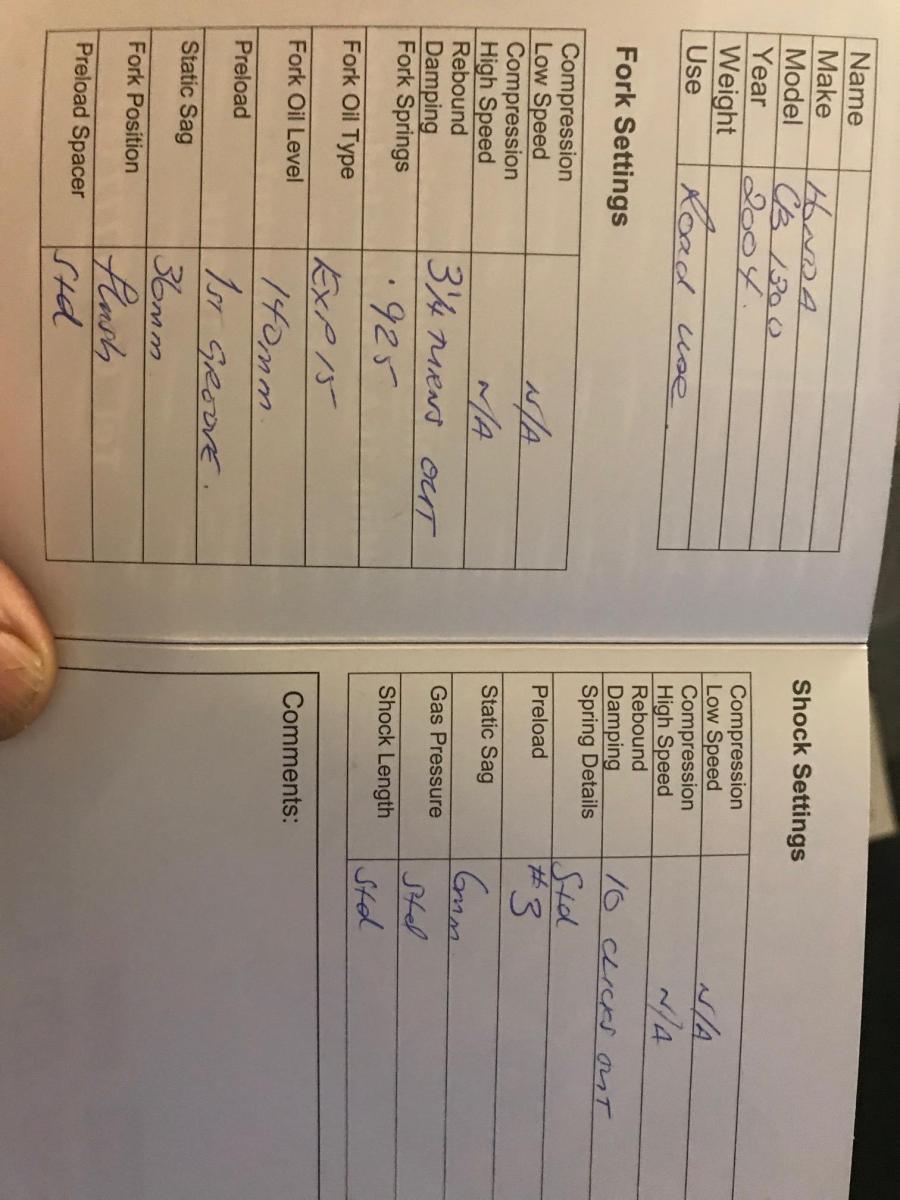 Name
Make HONDA
Model CB 1300
Year 2004.
Weight
Use Road use
Fork Settings
Compression
Low Speed N/A
Compression
High Speed N/A
Rebound
Damping 3¼ TURNS OUT
Fork Springs .925
Fork Oil Type EXP 15
Fork Oil Level 140mm
Preload 1ST GROOVE.
Static Sag 36mm
Fork Position flush
Preload Spacer Std
Shock Settings
Compression
Low Speed N/A
Compression
High Speed N/A
Rebound
Damping 16 CLICKS OUT
Spring Details Std
Preload #3
Static Sag 6mm
Gas Pressure Std
Shock Length Std
Comments: